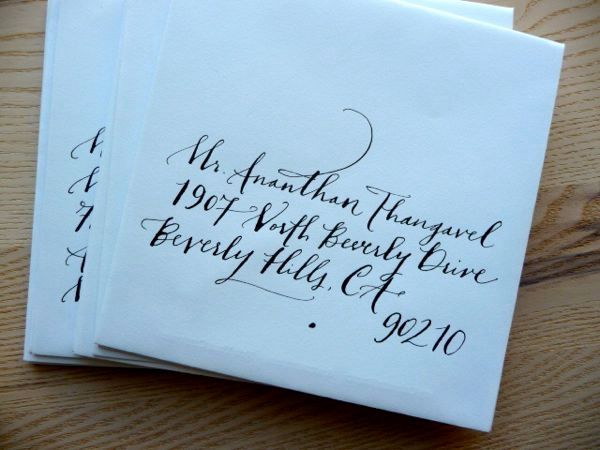 Mr. Ananthan Thangavel
1907 North Beverly Drive
Beverly Hills, CA
90210